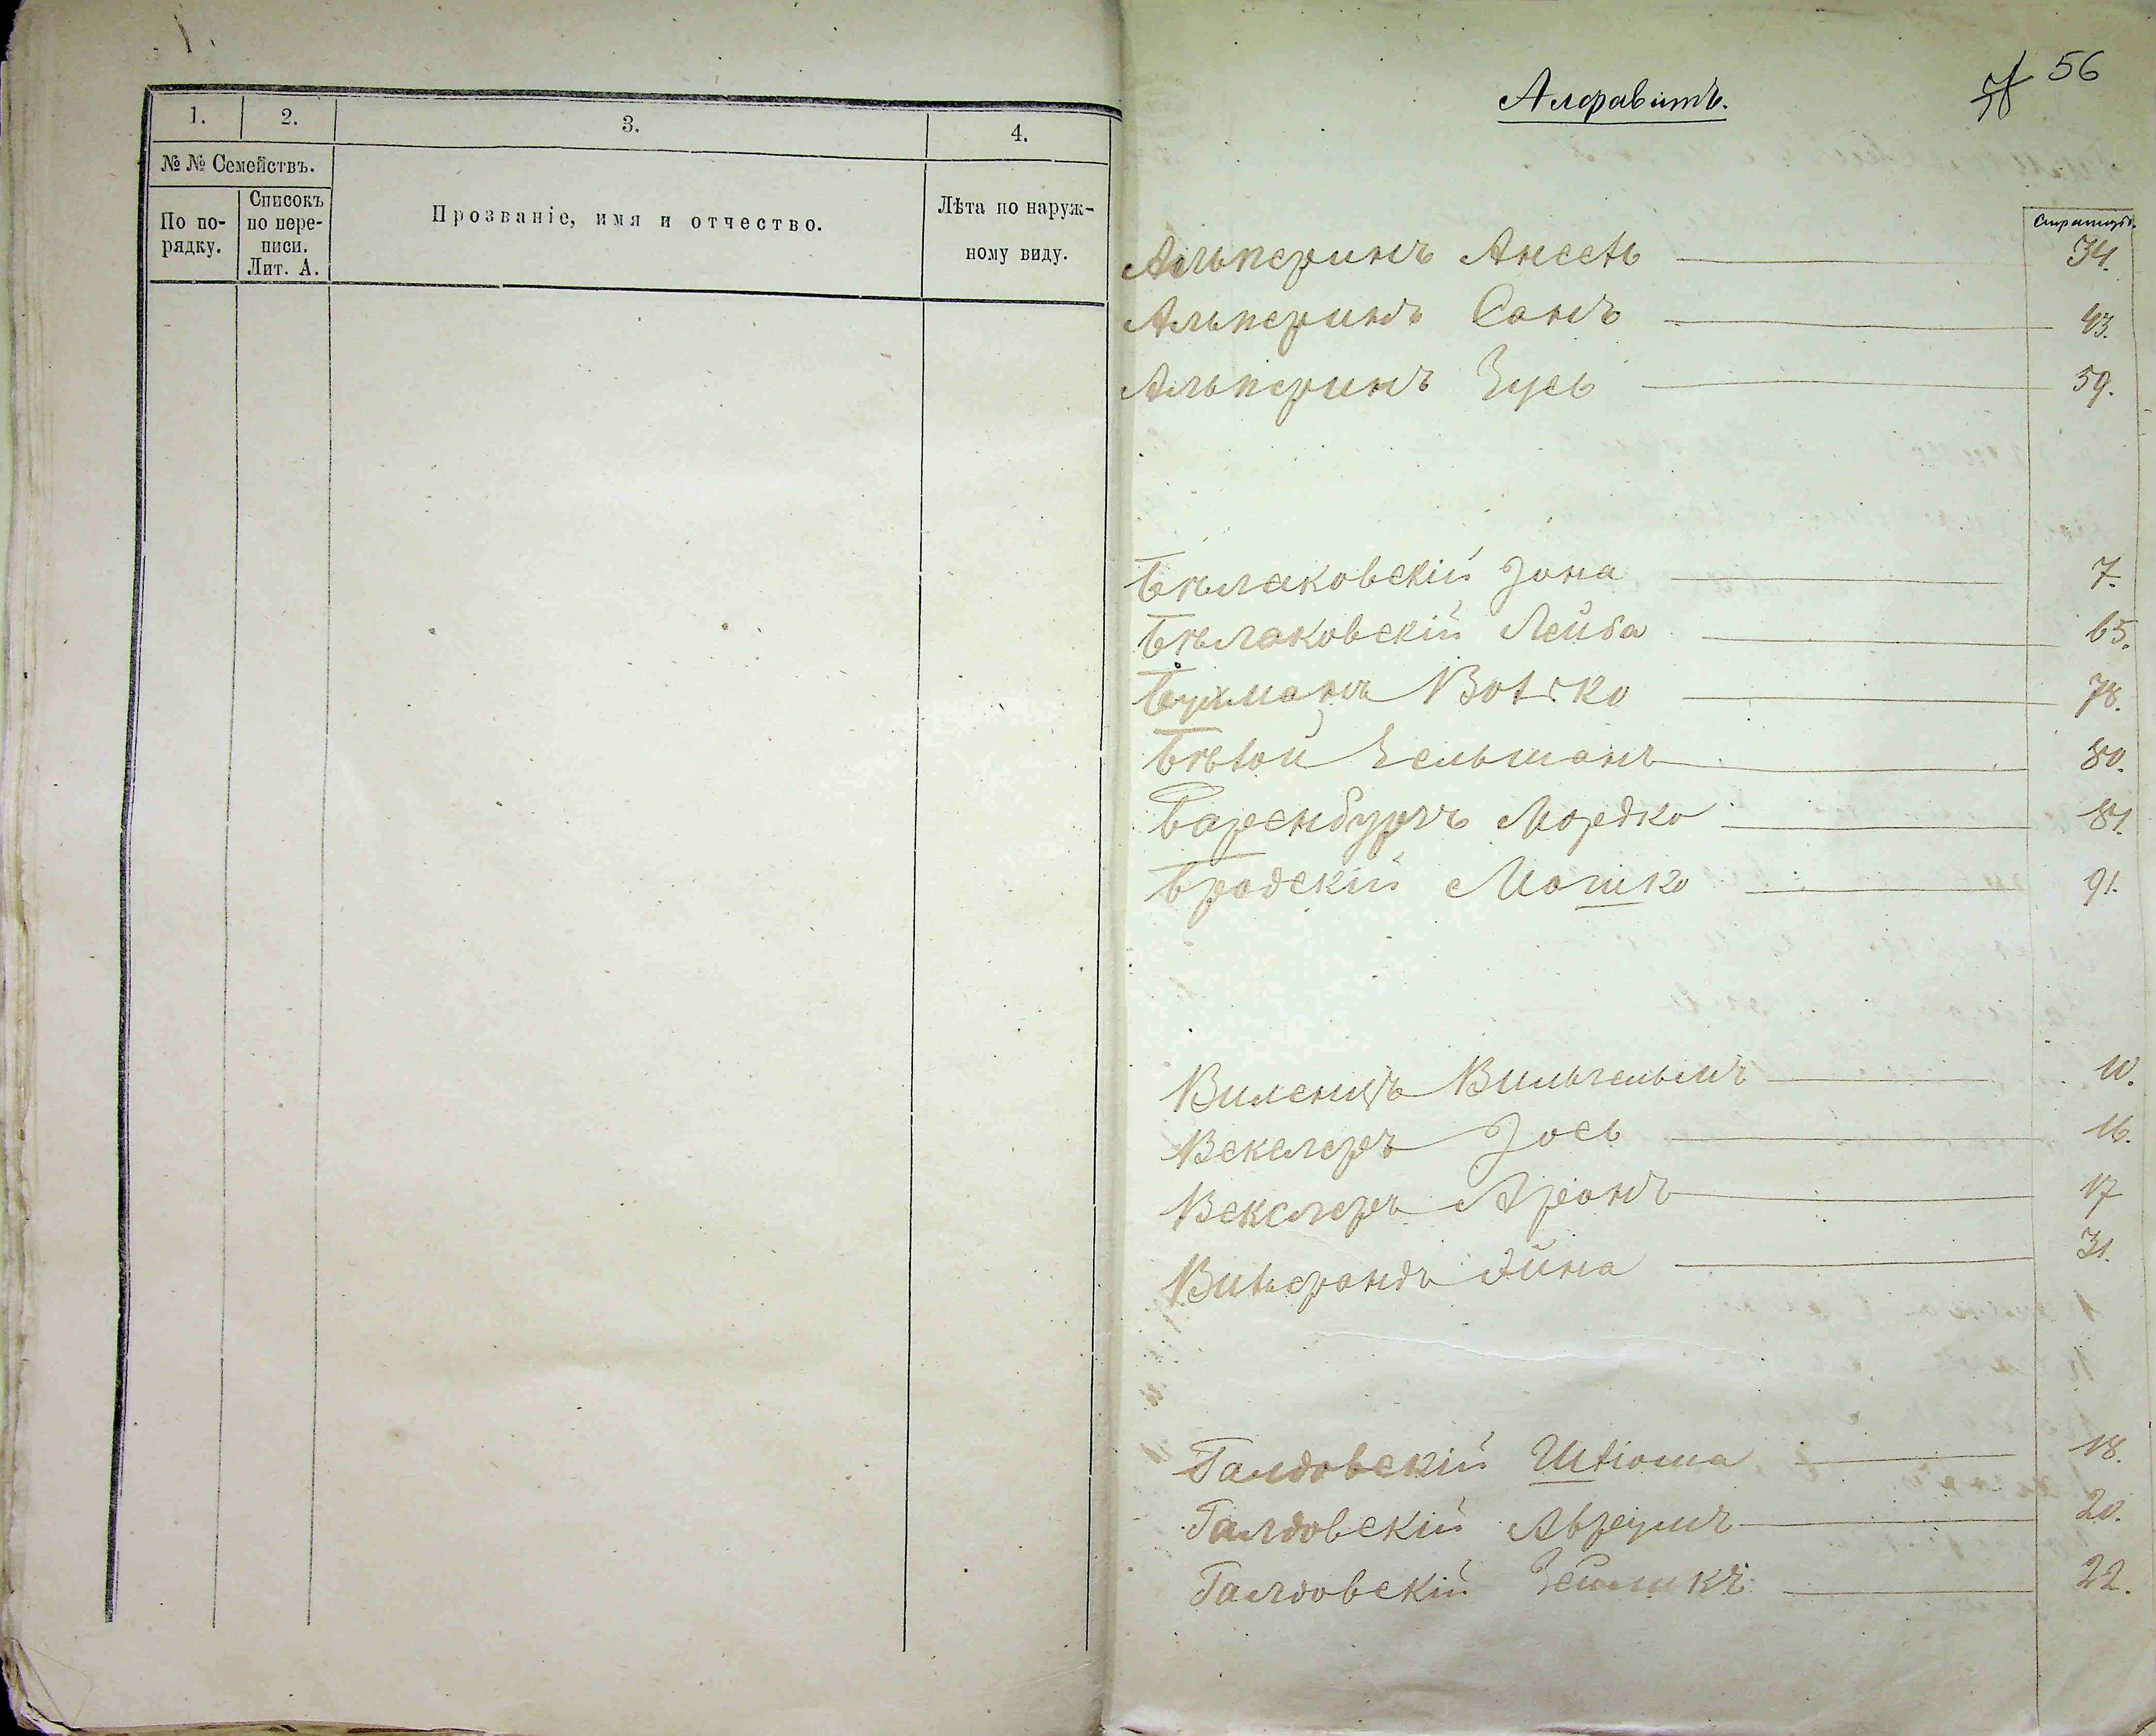 1.
2.
3.
4.
№ № Семействъ.
По по-
рядку.
Списокъ
по пере-
писи.
Лит. А.
Прозваніе, имя и отчество.
Лѣта по наруж-
ному виду.
56
Алфавитъ.
Страницы.
Альперинъ Ансель 34.
Альперинъ Сонъ 43.
Альперинъ Зусь 59.
Бѣлаковскій Іона 7.
Бѣлаковскій Лейба 65.
Волько 78.
Бѣлой Зельманъ 80.
Баренбургъ Мордко 81.
Бродскій Мошко 91.
Виленцъ Вильгельмъ 10.
Векслеръ Іось 16.
Векслеръ Аронъ 17
31.
Галдовскій Шліома 18.
Галдовскій Абрамъ 20.
Галдовскій Зейликъ 22.